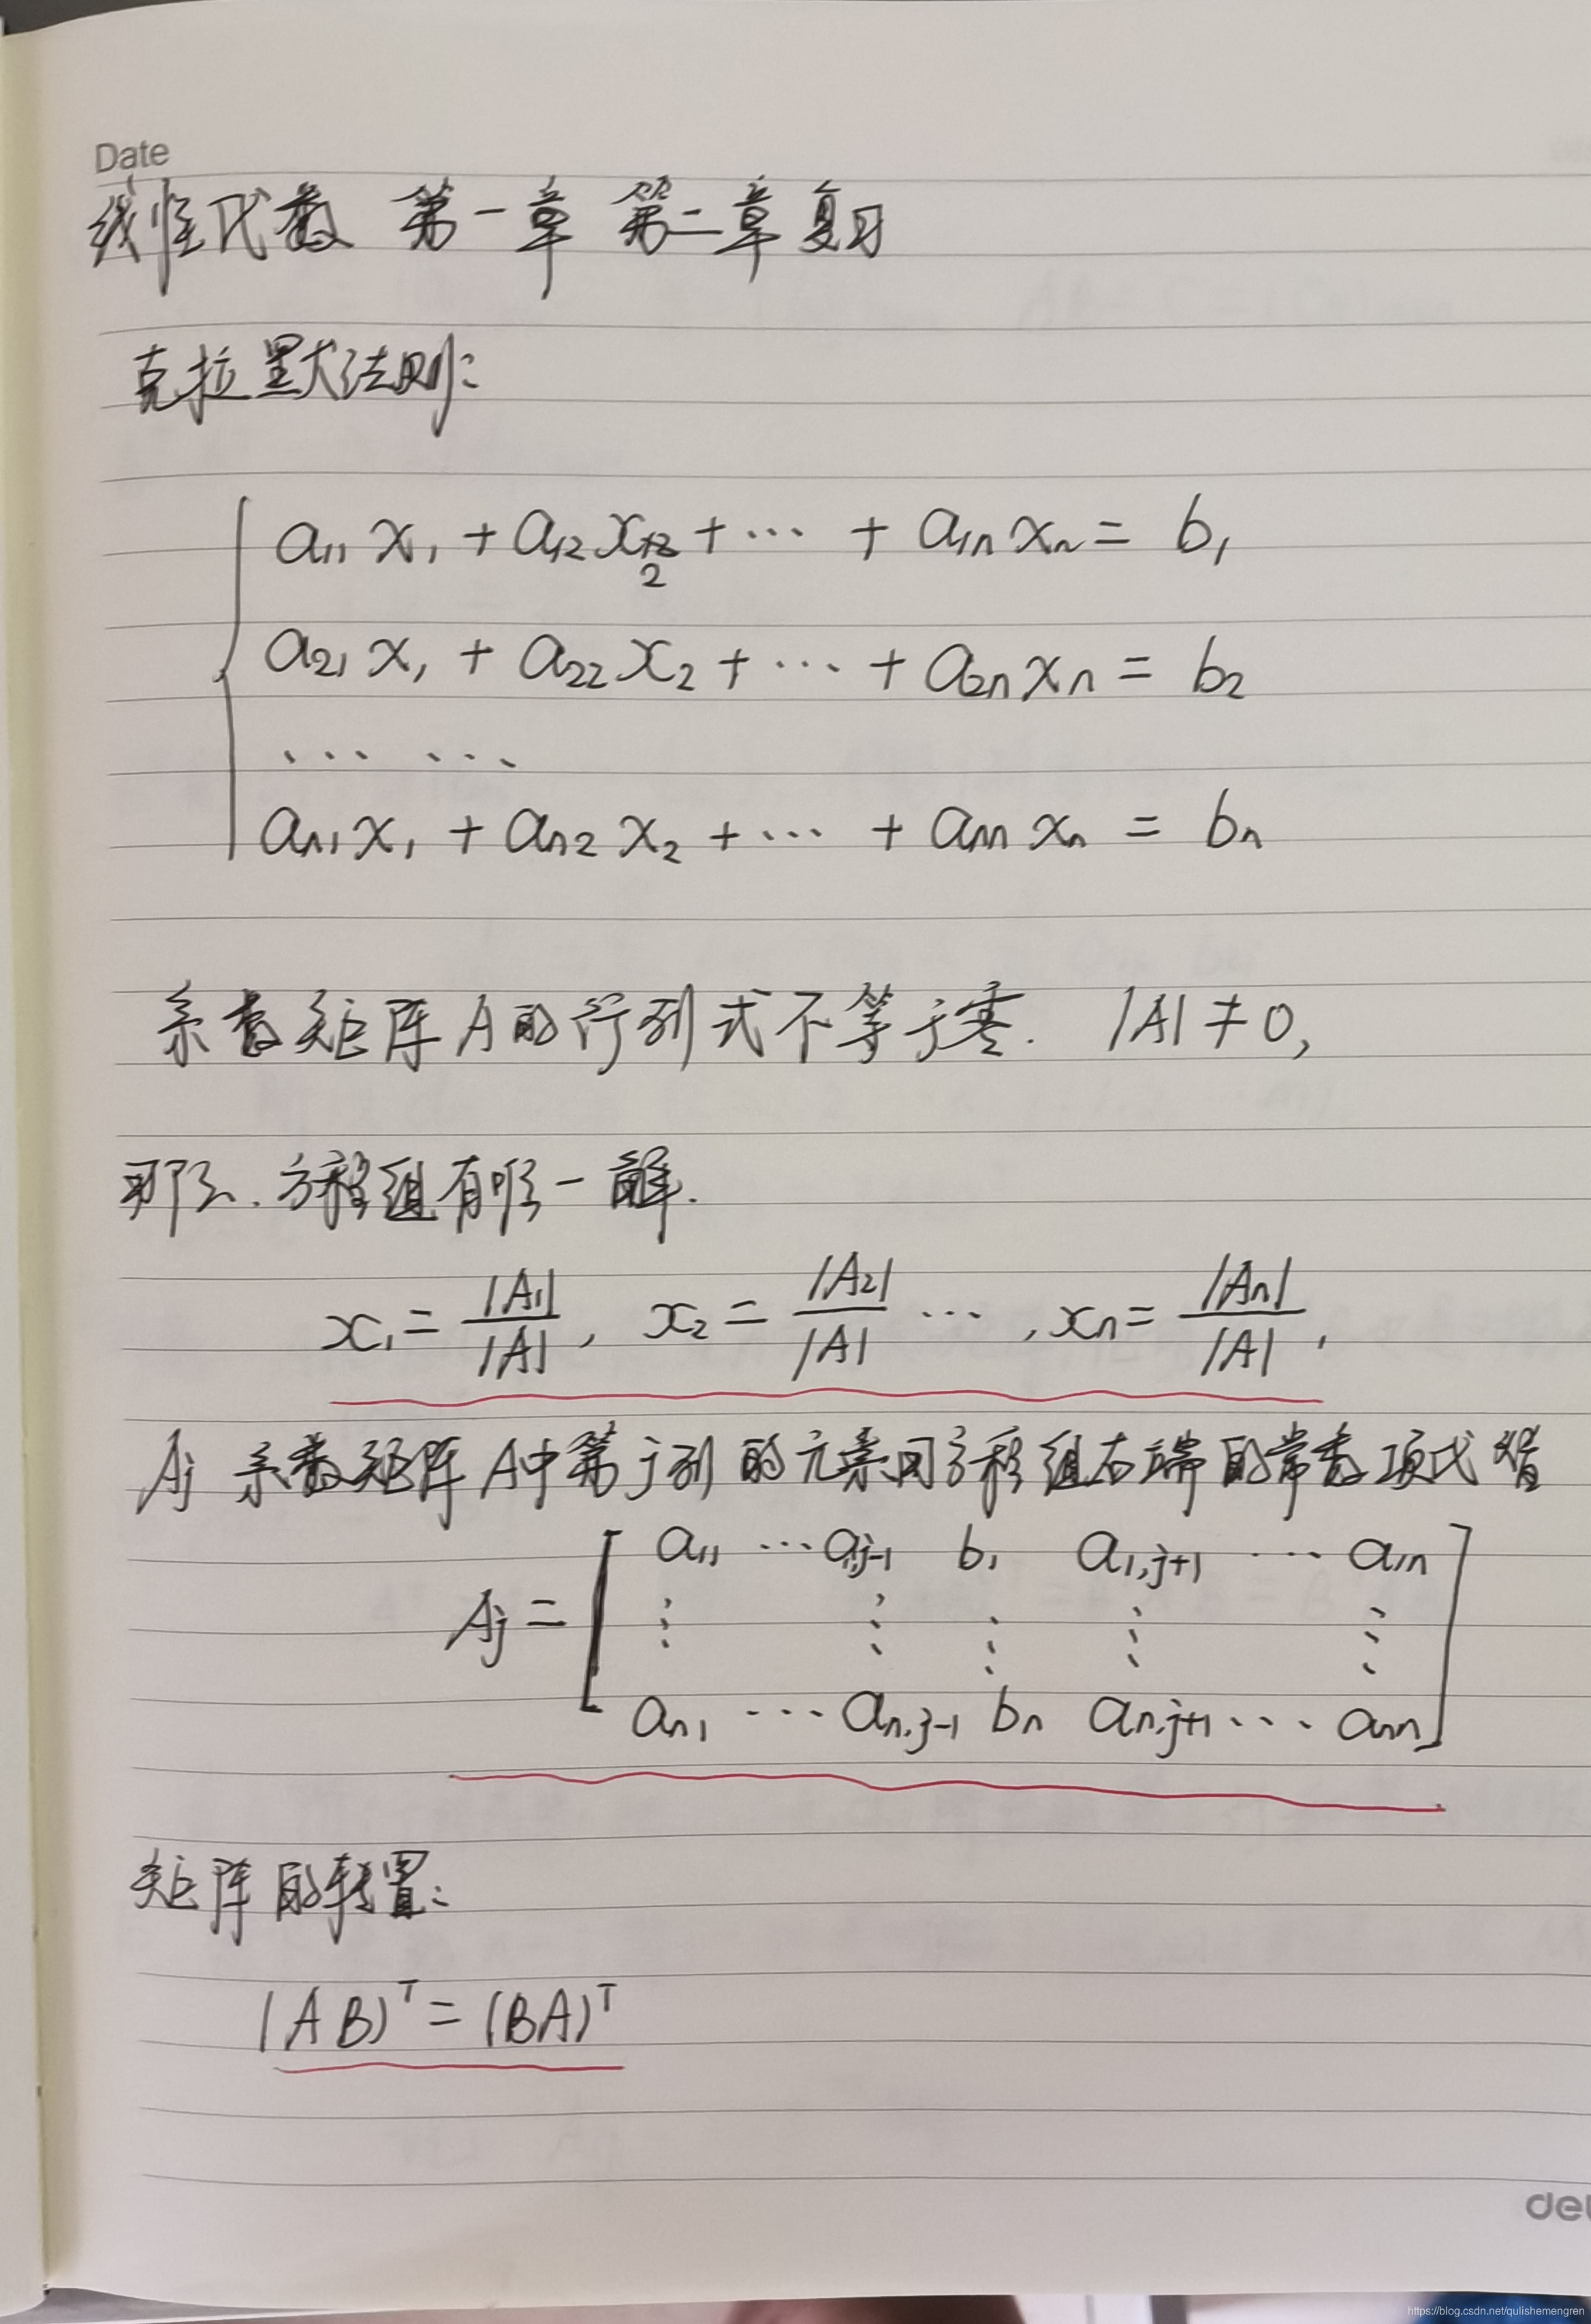 Date
线性代数 第一章 第二章复习
克拉默法则:
a₁₁x₁ + a₁₂x₂ + ⋯ + a₁ₙxₙ = b₁
a₂₁x₁ + a₂₂x₂ + ⋯ + a₂ₙxₙ = b₂
⋯ ⋯
aₙ₁x₁ + aₙ₂x₂ + ⋯ + aₙₙxₙ = bₙ
系数矩阵A的行列式不等于零. |A| ≠ 0,
那么.方程组有唯一解.
x₁ = |A₁|/|A| , x₂ = |A₂|/|A| ⋯ , xₙ = |Aₙ|/|A| ,
Aj 系数矩阵A中第j列的元素用方程组右端的常数项代替
a₁₁ ⋯ a₁,j-1 b₁ a₁,j+1 ⋯ a₁ₙ
Aj = [ ⋮ ⋮ ⋮ ⋮ ⋮ ]
aₙ₁ ⋯ aₙ,j-1 bₙ aₙ,j+1 ⋯ aₙₙ
矩阵的转置:
(AB)ᵀ = (BA)ᵀ
https://blog.csdn.net/qulishemengren